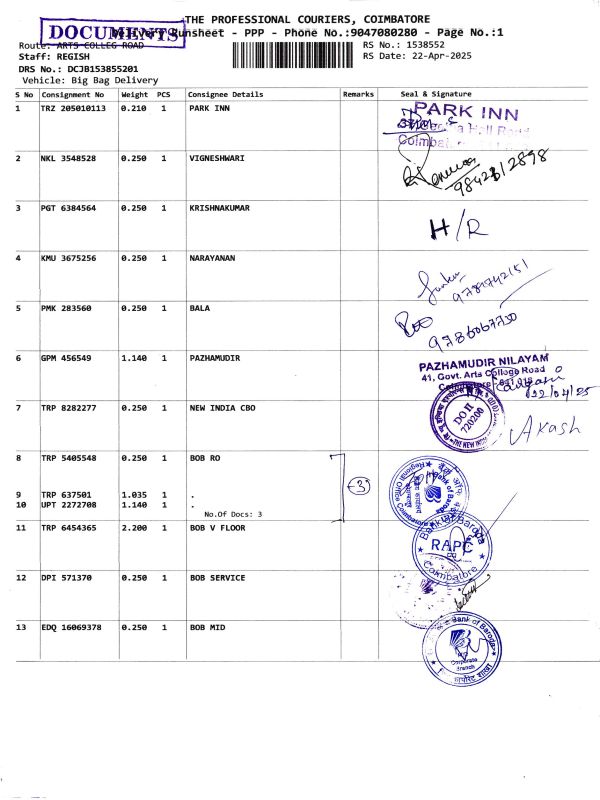 THE PROFESSIONAL COURIERS, COIMBATORE
DOCUMENTS
Delivery Runsheet - PPP - Phone No.:9047080280 - Page No.:1
Route: ARTS COLLEG ROAD
RS No.: 1538552
Staff: REGISH
RS Date: 22-Apr-2025
DRS No.: DCJB153855201
Vehicle: Big Bag Delivery
S No Consignment No Weight PCS Consignee Details Remarks Seal & Signature
1 TRZ 205010113 0.210 1 PARK INN
PARK INN
Road
2 NKL 3548528 0.250 1 VIGNESHWARI
3 PGT 6384564 0.250 1 KRISHNAKUMAR
H/R
4 KMU 3675256 0.250 1 NARAYANAN
5 PMK 283560 0.250 1 BALA
6 GPM 456549 1.140 1 PAZHAMUDIR
PAZHAMUDIR NILAYAM
41, Govt. Arts College Road
22/04/25
7 TRP 8282277 0.250 1 NEW INDIA CBO
DO II
720200
Akash
8 TRP 5405548 0.250 1 BOB RO
3
Bank of Baroda
Regional Office Coimbatore
9 TRP 637501 1.035 1 .
10 UPT 2272708 1.140 1 .
No.Of Docs: 3
11 TRP 6454365 2.200 1 BOB V FLOOR
Bank of Baroda
RAPC
Coimbatore
12 DPI 571370 0.250 1 BOB SERVICE
13 EDQ 16069378 0.250 1 BOB MID
Bank of Baroda
Corporate
Branch